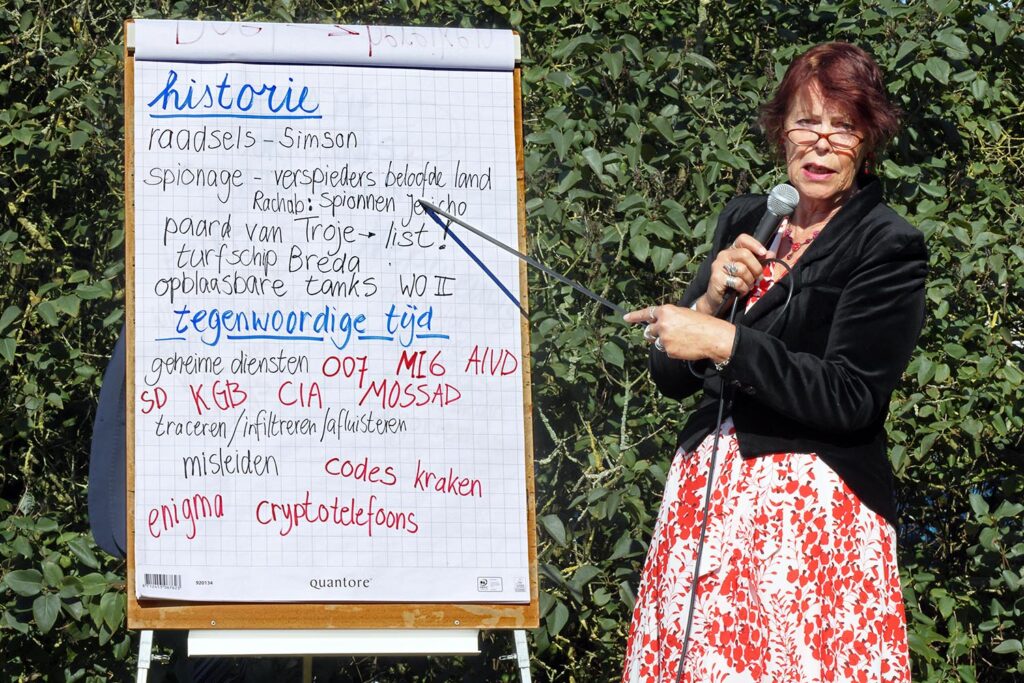 historie
raadsels - Simson
spionage - verspieders beloofde land
Rachab: Spionnen Jericho
paard van Troje → list!
turfschip Breda
opblaasbare tanks WO II
tegenwoordige tijd
geheime diensten 007 MI6 AIVD
SD KGB CIA MOSSAD
traceren/infiltreren/afluisteren
misleiden codes kraken
enigma cryptotelefoons
920134 quantore